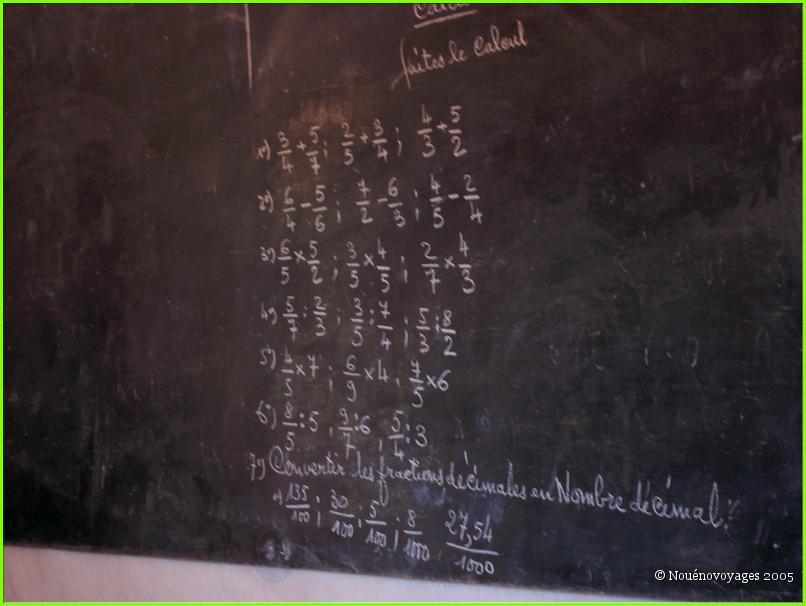 Calcul
faites le Calcul
1°) 3/4 + 5/7 ; 2/5 + 3/4 ; 4/3 + 5/2
2°) 6/4 - 5/6 ; 7/2 - 6/3 ; 4/5 - 2/4
3°) 6/5 × 5/2 ; 3/5 × 4/5 ; 2/7 × 4/3
4°) 5/7 : 2/3 ; 3/5 : 7/4 ; 5/3 : 8/2
5°) 4/5 × 7 ; 6/9 × 4 , 7/5 × 6
6°) 8/5 : 5 , 9/7 : 6 , 5/4 : 3
7°) Convertir les fractions décimales en Nombre décimal.
135/100 ; 30/100 ; 5/100 ; 8/1000 27,54/1000
© Nouénovoyages 2005